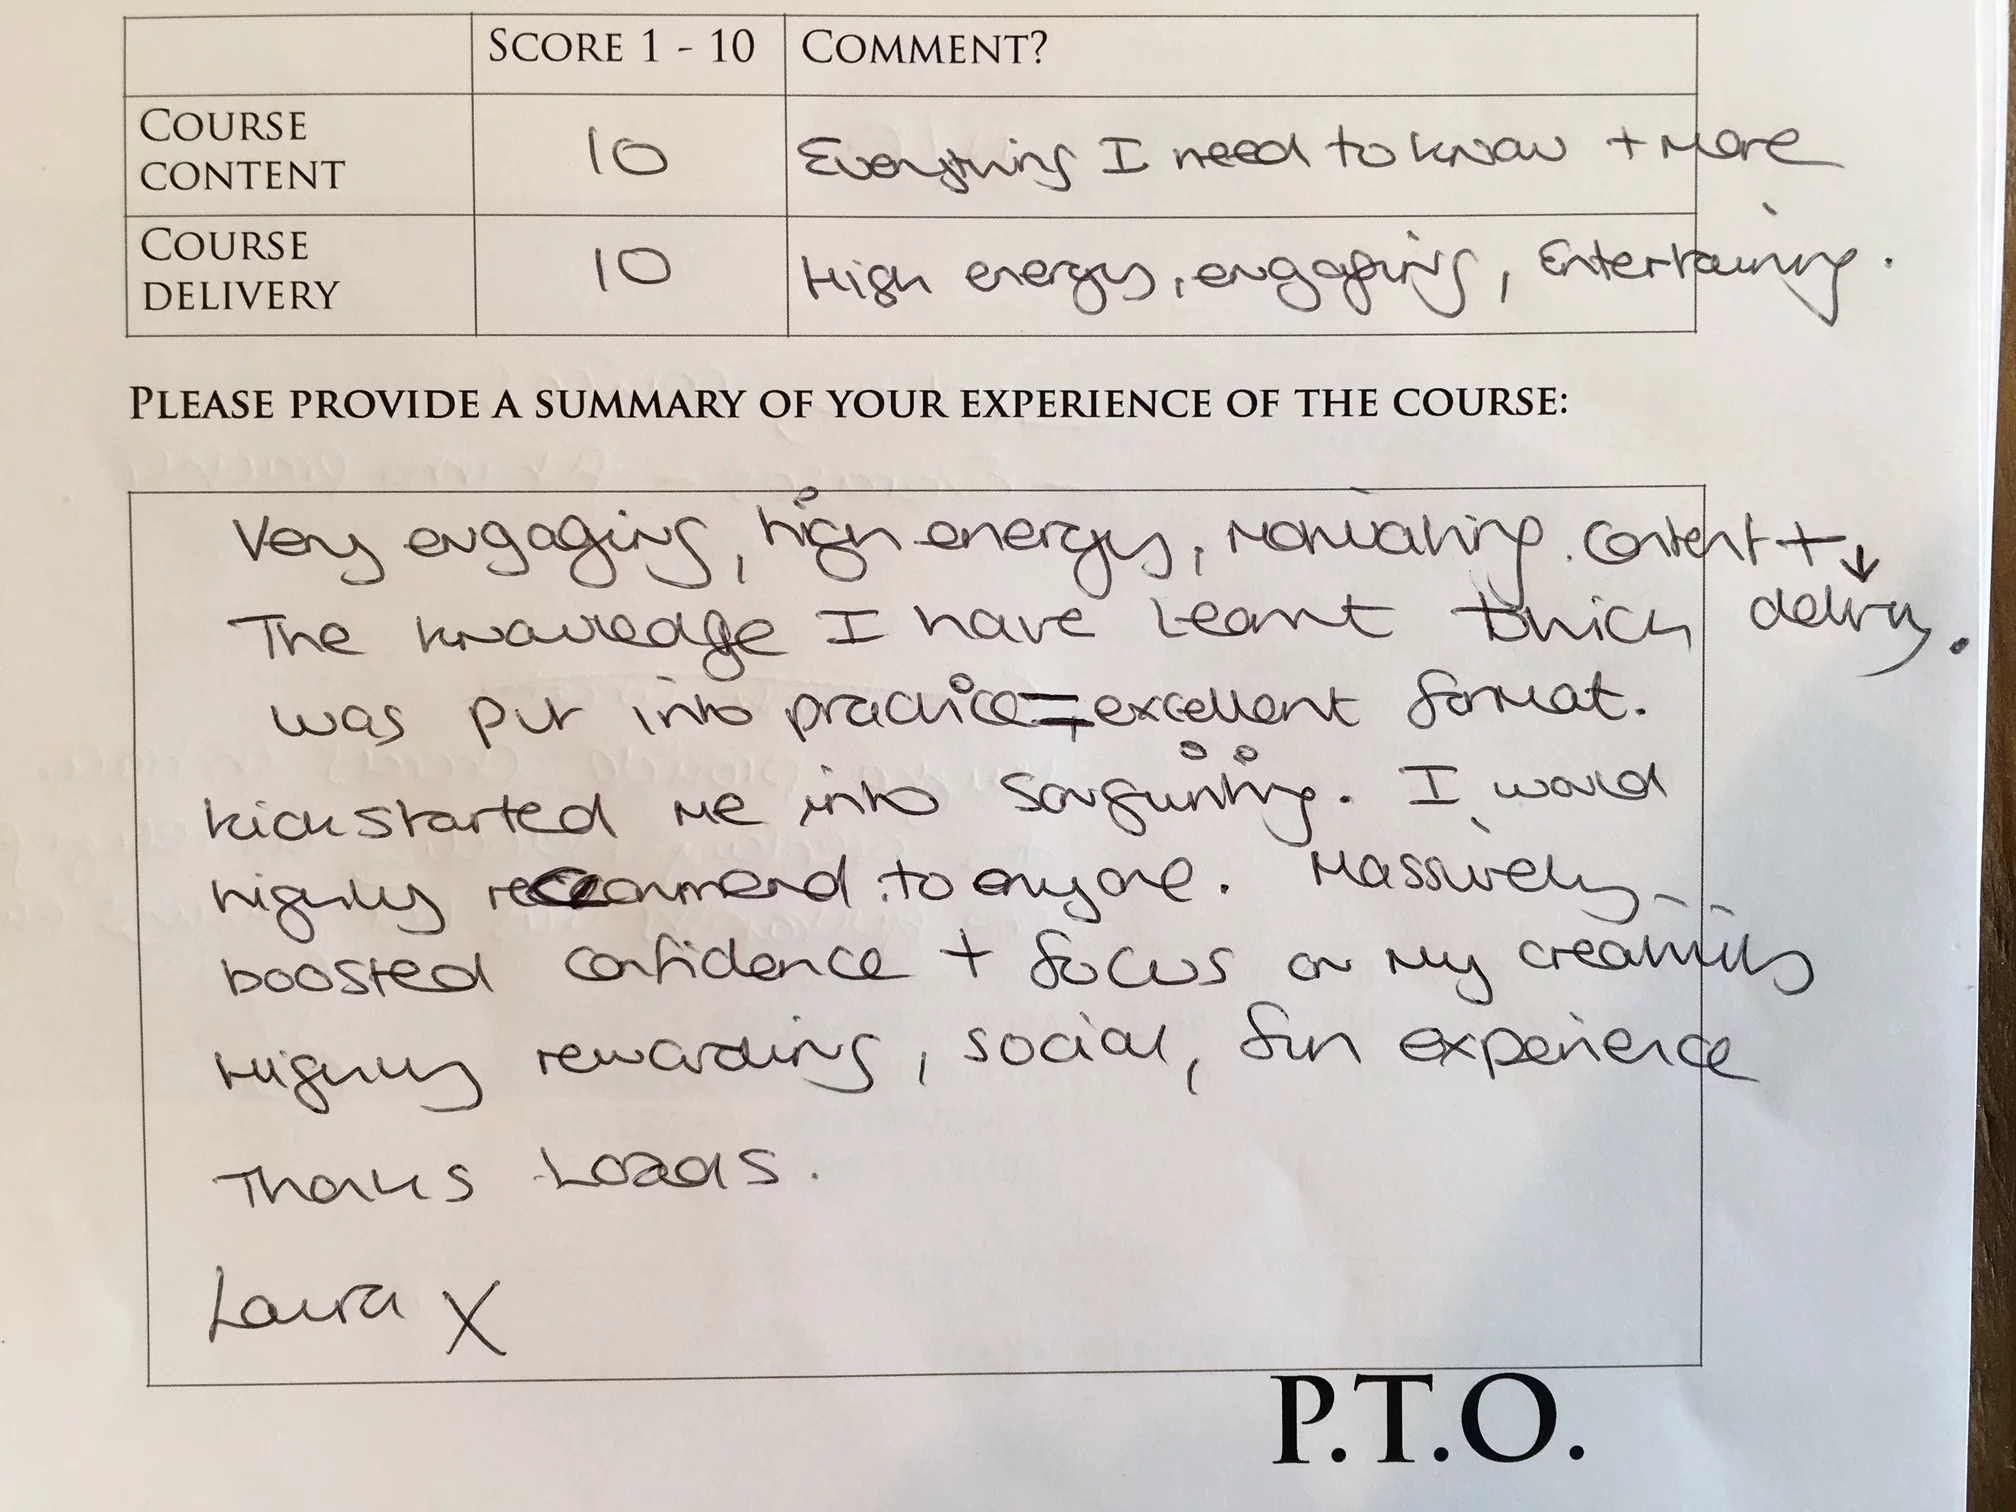 SCORE 1 - 10 COMMENT?
COURSE CONTENT 10 Everything I need to know + more
COURSE DELIVERY 10 High energy, engaging, Entertaining.
PLEASE PROVIDE A SUMMARY OF YOUR EXPERIENCE OF THE COURSE:
Very engaging, high energy, motivating. content + ↓
The knowledge I have learnt which delivry.
was put into practice = excellent format.
kickstarted me into songwriting. I would
highly recommend to anyone. Massively
boosted confidence + focus on my creativity
Highly rewarding, social, fun experience
Thanks Loads.
Laura X
P.T.O.